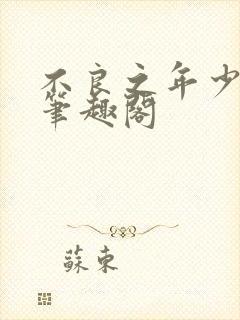 不良之年少
筆趣閣
蘇東